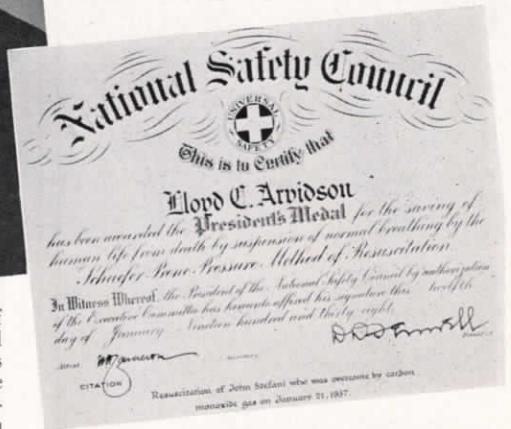 National Safety Council
UNIVERSAL SAFETY
This is to Certify that
Lloyd C. Arvidson
has been awarded the President's Medal for the saving of
human life from death by suspension of normal breathing by the
Schaefer Prone Pressure Method of Resuscitation
In Witness Whereof, the President of the National Safety Council by authorization
of the Executive Committee has hereunto affixed his signature this twelfth
day of January Nineteen hundred and thirty eight.
CITATION
Resuscitation of John Stefani who was overcome by carbon
monoxide gas on January 21, 1937.